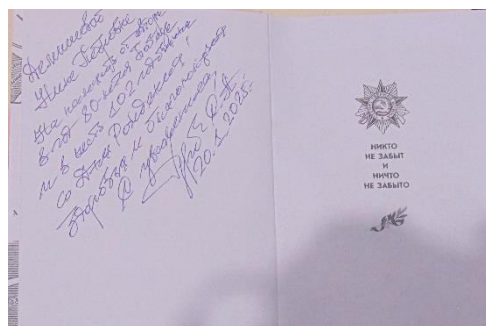 Нине Петровне
на память от автора
в год 80-летия Победы
и в честь 102 годовщины
со Дня Рождения!
Здоровья и благополучия
С уважением,
20.1.2025г.
НИКТО
НЕ ЗАБЫТ
И
НИЧТО
НЕ ЗАБЫТО